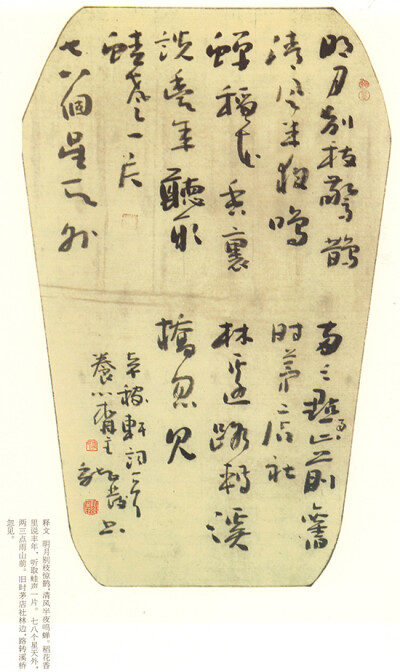 明月别枝驚鵲
清風半夜鳴
蟬稻花香裏
説豐年聽取
蛙聲一片
七八個星天外
两三點雨山前舊
時茅店社
林邊路轉溪
橋忽見
辛稼軒詞一首
释文 明月别枝惊鹊，清风半夜鸣蝉。稻花香
里说丰年，听取蛙声一片。七八个星天外，
两三点雨山前。旧时茅店社林边，路转溪桥
忽见。